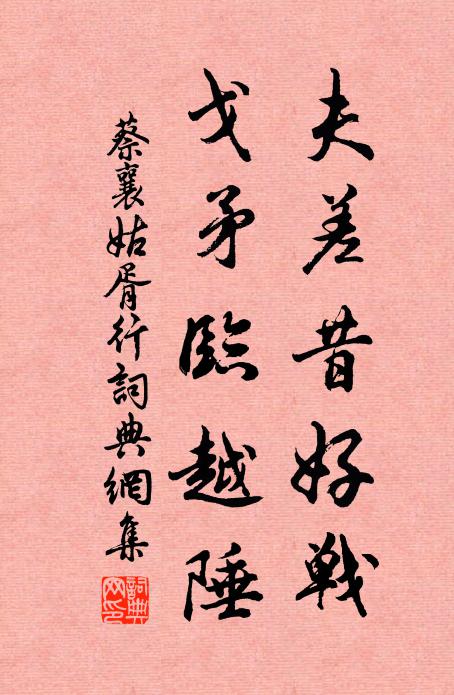 夫差昔好戰
戈矛臨越陲
蔡襄姑胥行詞典網集
詞典
网印